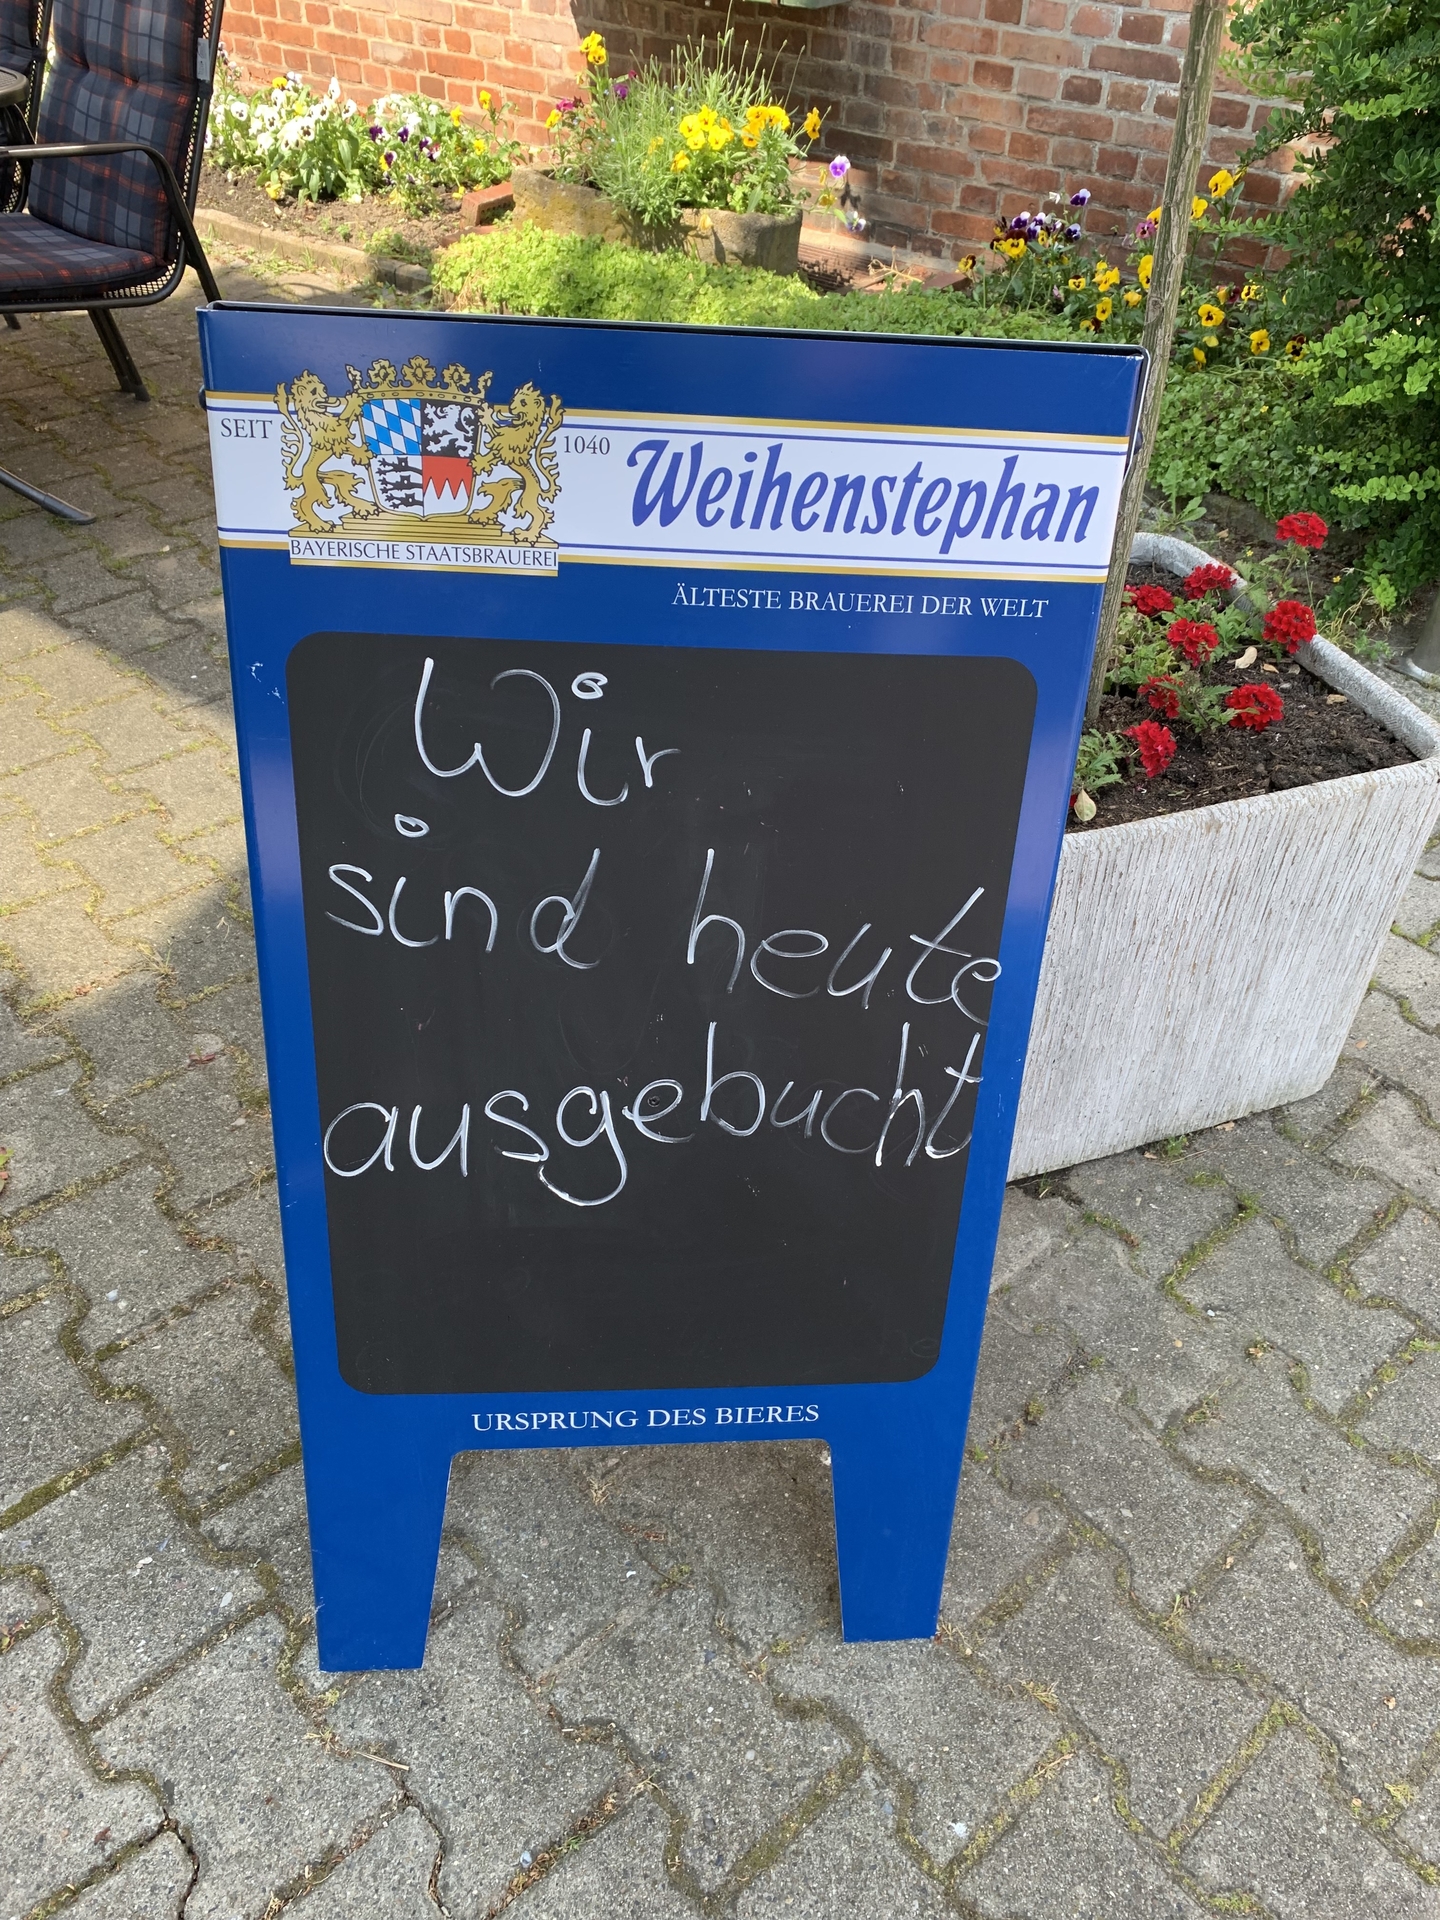 SEIT 1040 Weihenstephan
BAYERISCHE STAATSBRAUEREI
ÄLTESTE BRAUEREI DER WELT
Wir
sind heute
ausgebucht
URSPRUNG DES BIERES